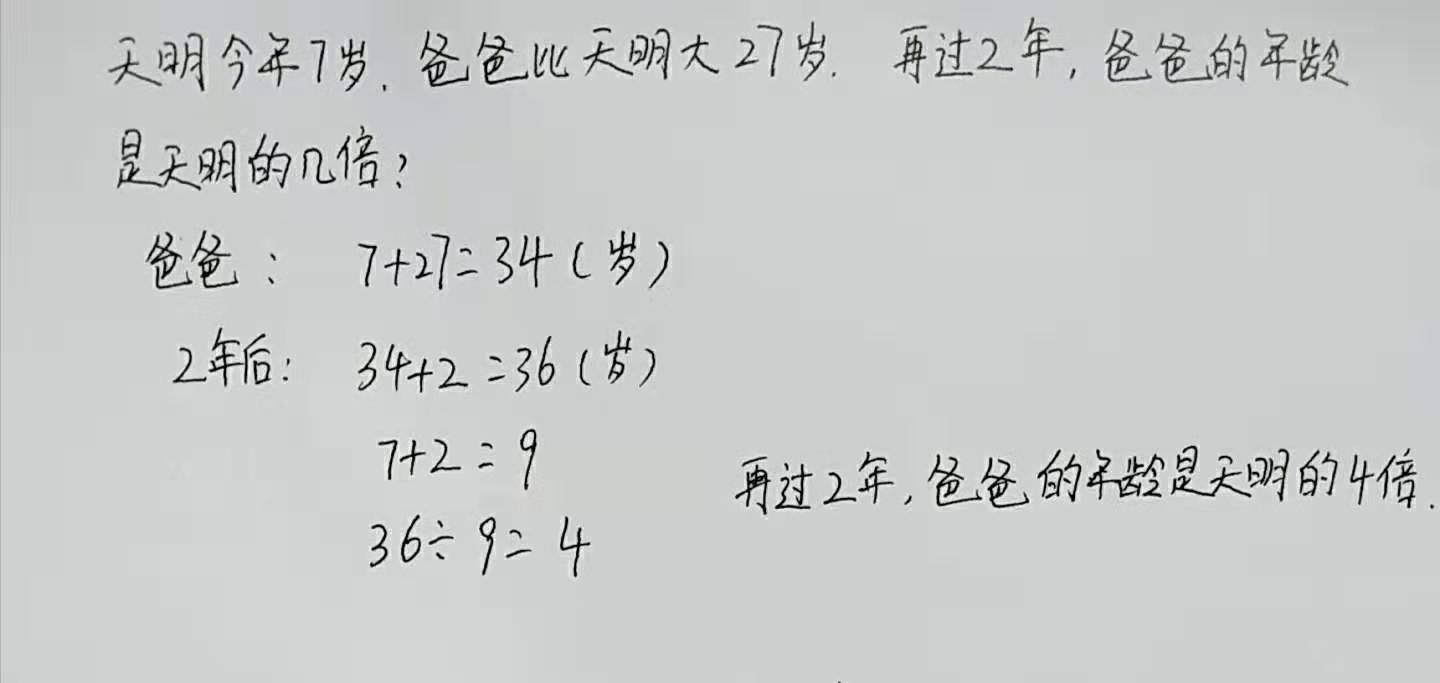 天明今年7岁.爸爸比天明大27岁. 再过2年,爸爸的年龄
是天明的几倍?
爸爸: 7+27=34(岁)
2年后: 34+2=36(岁)
7+2=9
36÷9=4
再过2年,爸爸的年龄是天明的4倍.